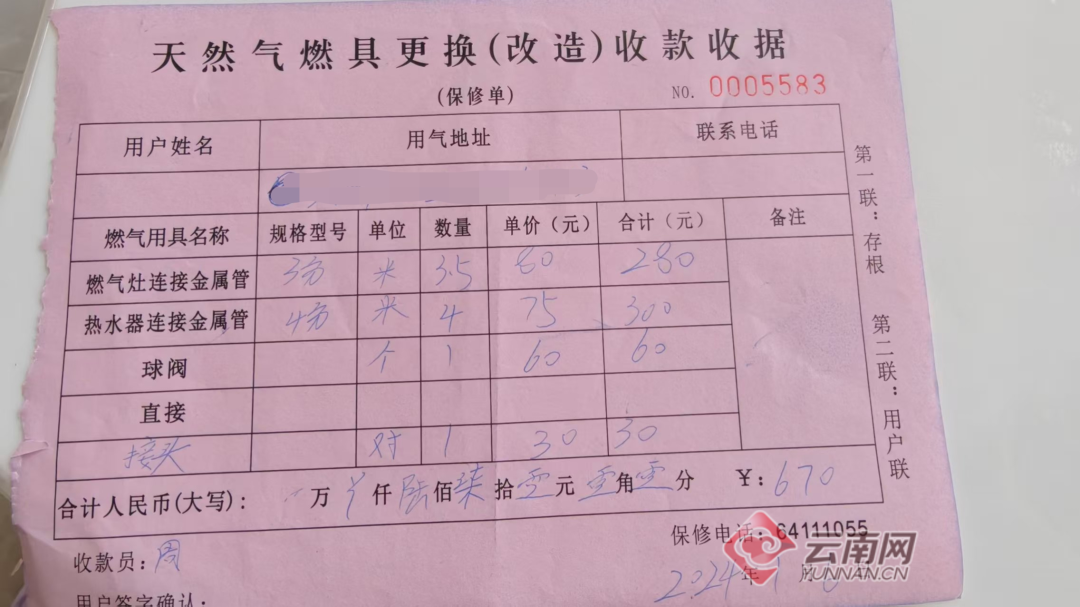 天然气燃具更换(改造)收款收据
(保修单)
NO. 0005583
用户姓名 用气地址 联系电话
燃气用具名称 规格型号 单位 数量 单价（元） 合计（元） 备注
燃气灶连接金属管 3分 米 3.5 80 280
热水器连接金属管 4分 米 4 75 300
球阀 个 1 60 60
直接
接头 对 1 30 30
合计人民币(大写): 万 仟 陆佰柒拾零元零角零分 ¥: 670
保修电话: 64111055
收款员: 周
2024年1月
用户签字确认:
第一联：存根 第二联：用户联
云南网
YUNNAN.CN